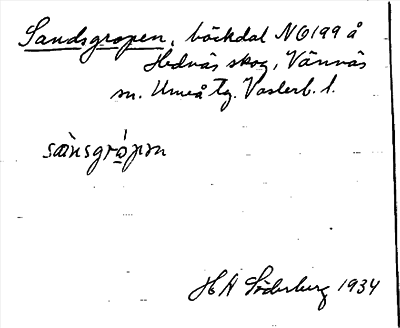 Sandsgropen, bäckdal NO 199 å
Hednäs skog, Vännäs
sn. Umeå tg. Västerb. l.
sànsgrópm
H A Söderberg 1934